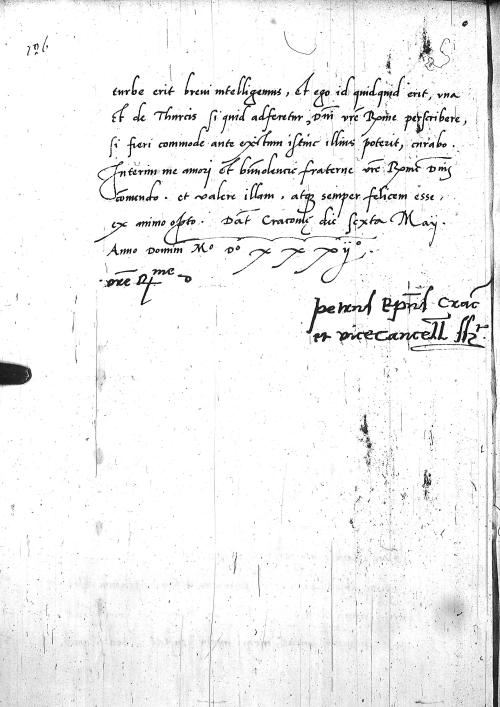 126
turbe erit brevi intelligemus, Et ego id quidquid erit, una
Et de Thurcis si quid adferetur, Dni vre Rme perscribere,
si fieri commode ante exitum istinc illius poterit, curabo.
Interim me amori Et benivolencie fraterne vre Rme Dnis
comendo. et valere illam, atq semper felicem esse,
ex animo opto. Dat Cracovie die sexta Maij
Anno Domini Mo Do xxxij°.
vre Rme D
petrus Epus Crac
et vicecancell